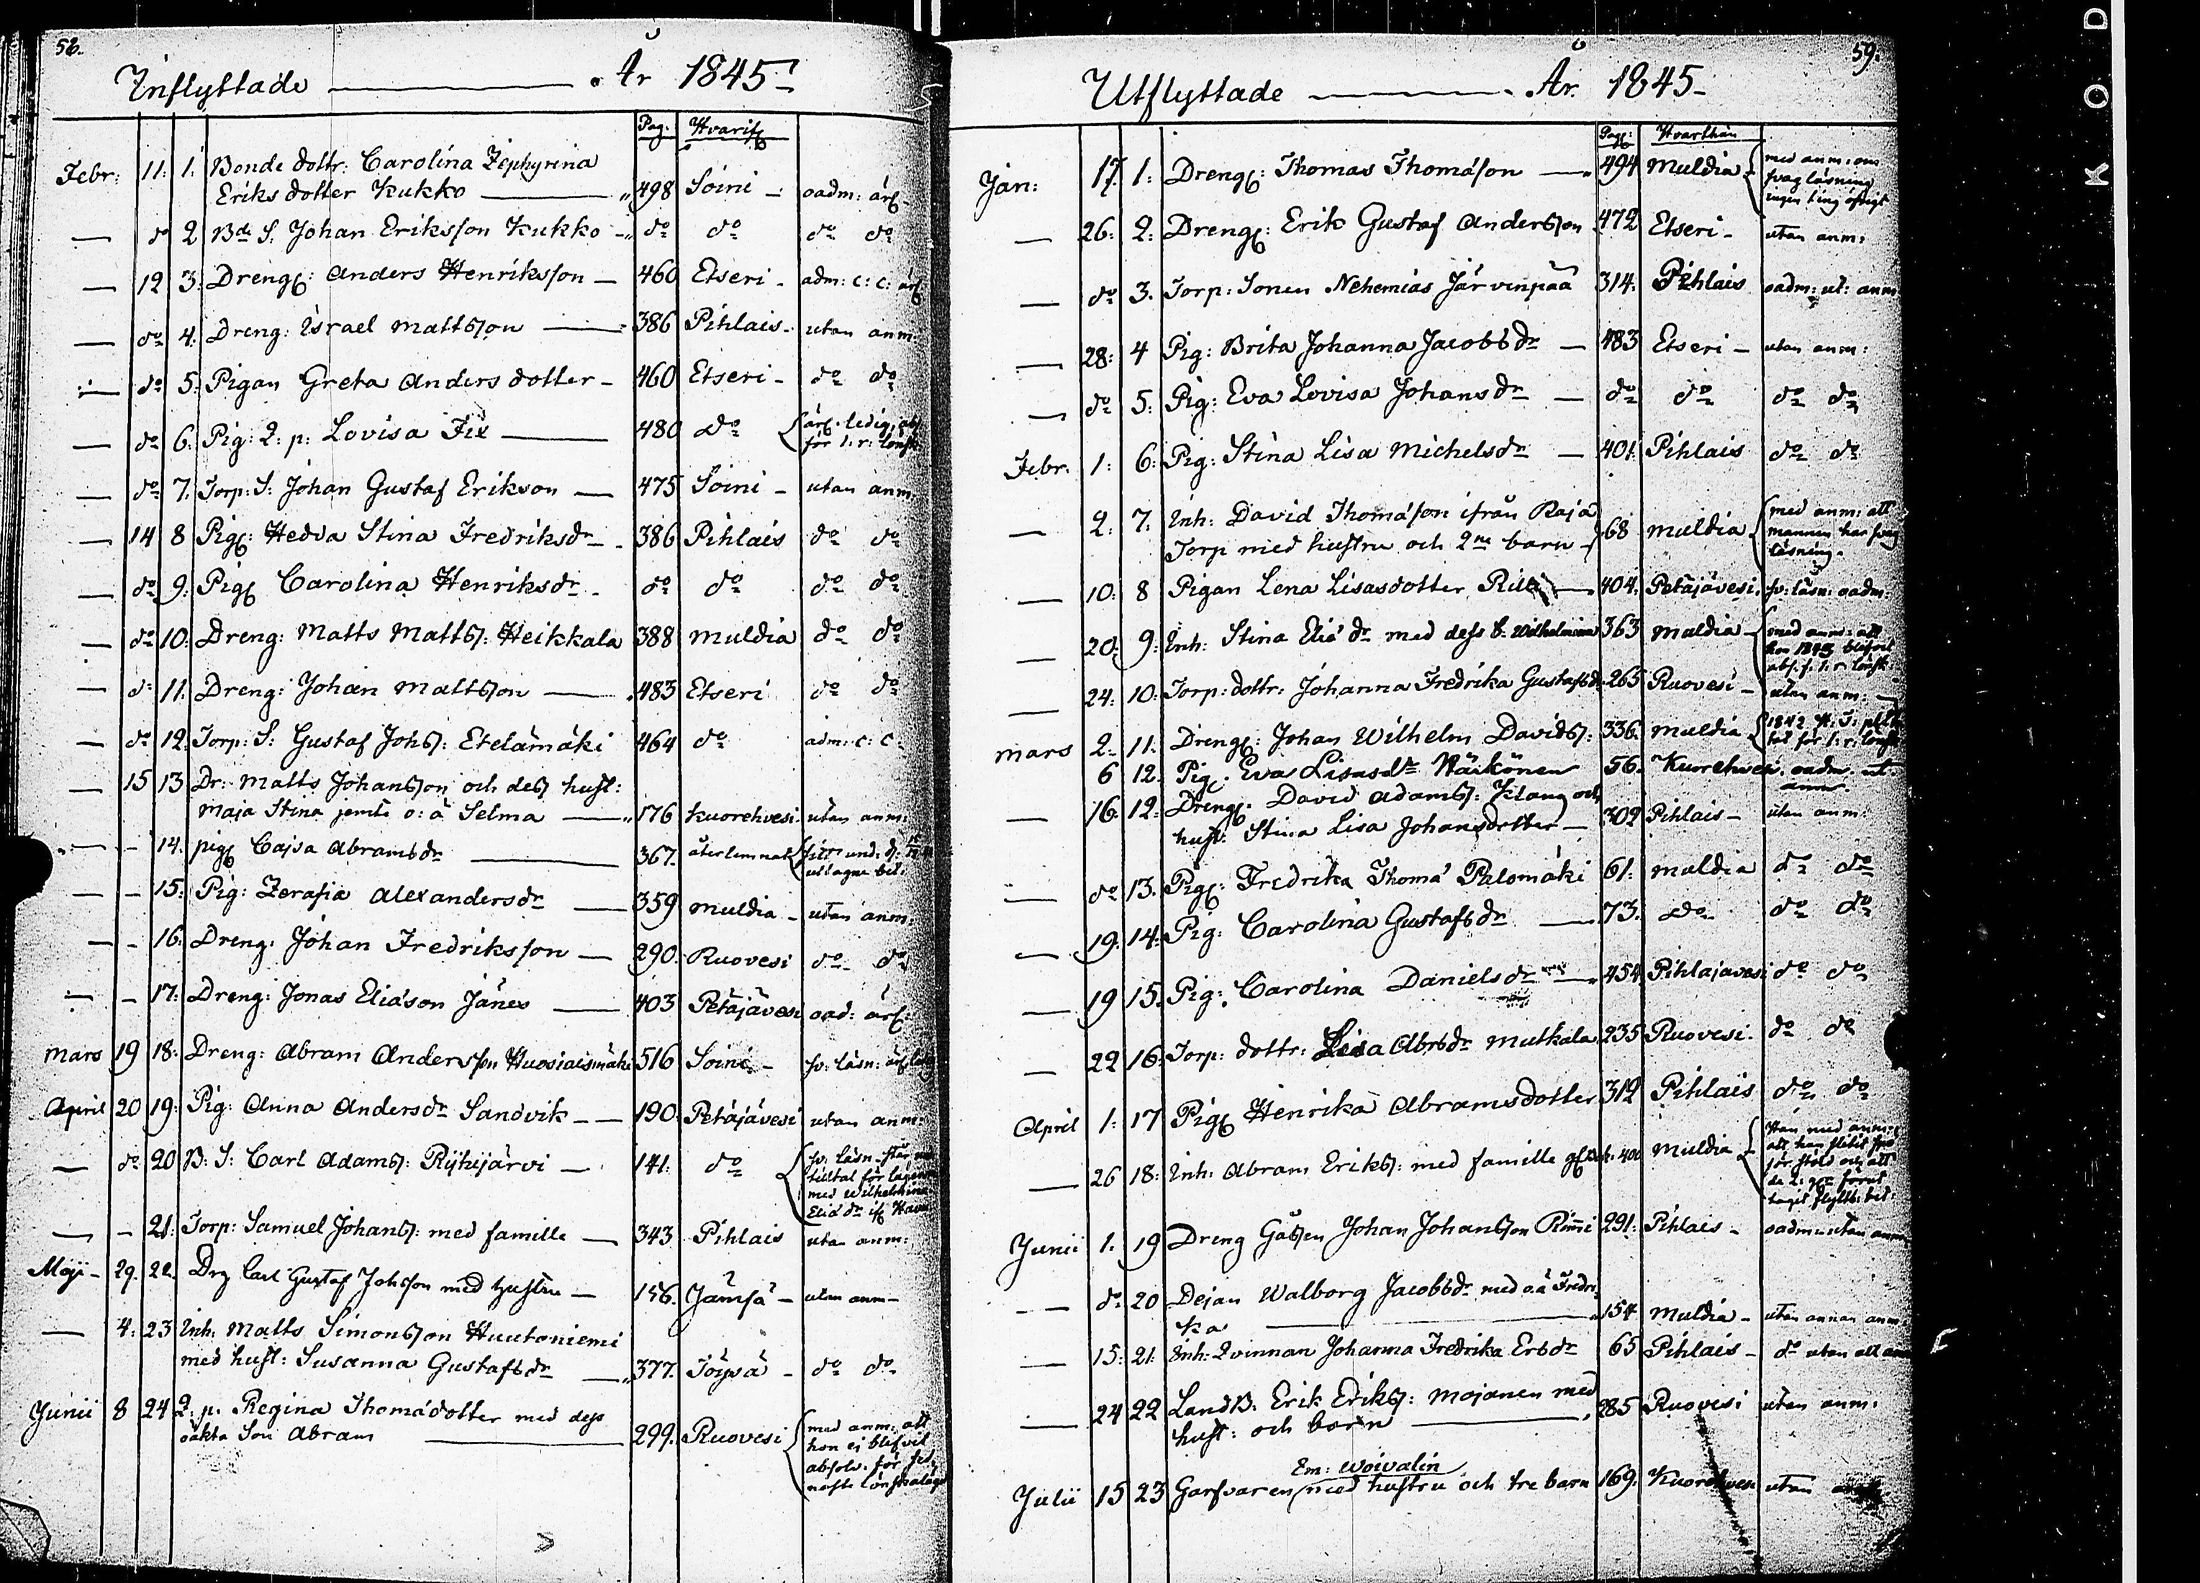 58.
Inflyttade ——— År 1845
Pag. Hvarifr.
Febr: 11: 1: Bonde dottr: Carolina Zephyrina
Eriks dotter Kukko — 498 Soini — oadm: ärl.
— do 2 Bd S. Johan Eriksson Kukko — do do do do
— 12 3: Dreng: Anders Henriksson — 460 Etseri — adm: c: c: ärl:
— do 4: Dreng: Israel Mattsson — 386 Pihlais — utan anm:
— do 5: Pigan Greta Anders dotter — 460 Etseri — do do
— do 6: Pig: Q: p: Lovisa Fix — 480 do ärl. ledig, abs
för 1: r: lönsk:
— do 7: Torp: S: Johan Gustaf Erikson — 475 Soini — utan anm.
— 14 8 Pig: Hedda Stina Fredriksdr — 386 Pihlais do do
— do 9: Pig Carolina Henriksdr — do do do do
— do 10: Dreng: Matts Matts: Heikkala 388 Muldia do do
— do 11: Dreng: Johan Mattsson — 483 Etseri do do
— do 12: Torp: S: Gustaf Johs: Etelämäki 464 do adm: c: c:
— 15 13 Dr: Matts Johansson och dess hust:
Maja Stina jemte o: ä Selma — 176 Kuorehvesi utan anm:
— – 14: pig Cajsa Abramsdr — 367. återlemnat
uttagne bet:
— – 15: Pig: Zerafia Alexandersdr — 359 Muldia — utan anm:
— – 16: Dreng: Johan Fredriksson — 290. Ruovesi do do
— – 17: Dreng: Jonas Eliason Jänes — 403 Petäjävesi oad: ärl:
Mars 19 18: Dreng: Abram Andersson Huosiaismäki 516 Soini — sv: läsn: ärl. ledig
April 20 19: Pig: Anna Andersdr Sandvik — 190: Petäjävesi utan anm:
— do 20 B: S: Carl Adams: Ryhijärvi — 141: do sv: läsn. står
tilltal för lägersm
med Wilhelmina
Elia dr
— – 21: Torp: Samuel Johans: med famille — 343 Pihlais utan anm:
Maji — 29. 22. Drg Carl Gustaf Johsson med hustru — 156. Jämsä — utan anm —
— 4: 23 Inh: Matts Simonsson Huutoniemi
med hust: Susanna Gustafsdr — 377. Töysä — do do
Junii 8 24 Q: p. Regina Thomasdotter med dess
oäkta Son Abram — 299. Ruovesi med anm: att
hon ej blifvit
absolv. för
naste lönskaläge
59.
Utflyttade ——— År. 1845
Pag: Hvarthän
Jan: 17. 1: Dreng: Thomas Thomasson — 494 Muldia — med anm: om
svag läsning
ingen ting öfrigt
— 26: 2: Dreng: Erik Gustaf Andersson 472 Etseri — utan anm:
— do 3. Torp: Sonen Nehemias Järvinpää 314. Pihlais oadm: ut: anm
— 28: 4 Pig: Brita Johanna Jacobsdr — 483 Etseri — utan anm:
— do 5: Pig: Eva Lovisa Johansdr — do do do do
Febr. 1: 6: Pig: Stina Lisa Michelsdr — 401. Pihlais do do
— 2: 7: Inh: David Thomasson ifrån Raja
Torp med hustru och 2ne barn — 68 Muldia med anm: att
mannen har svag
läsning.
— 10: 8 Pigan Lena Lisasdotter — 404. Petäjävesi. sv: läsn: oadm:
— 20: 9: Inh: Stina Elia dr med dess b. Wilhelmina 363 Muldia — med anm: att
hon 1843 blifvit
abs. f. 1: r: lönsk:
— 24: 10: Torp: dottr: Johanna Fredrika Gustafsdr 265 Ruovesi — utan anm: —
Mars 2: 11: Dreng: Johan Wilhelm Davids: 336. Muldia 1842
tat för 1: r: lönsk
6 12. Pig. Eva Lisasdr Näikönen 56. Kuorehvesi. oadm. ut:
anm.
— 16. 12: Dreng: David Adams: Klang och
hust: Stina Lisa Johansdotter — 302 Pihlais — utan anm:
— do 13. Pig: Fredrika Thoma Palomäki 61: Muldia do do
— 19. 14: Pig: Carolina Gustafsdr — 73. do do do
— 19 15: Pig: Carolina Danielsdr — 454. Pihlajavesi do do
— 22 16: Torp: dottr: Lisa Abrsdr Mutkala 235 Ruovesi. do do
April 1: 17 Pig Henrika Abramsdotter 312 Pihlais do do
— 26 18: Inh: Abram Eriks: med famille 400 Muldia utan med anm:
att han
för stöld och att
de 2: förut
taget flyttn: bet:
Junii 1. 19 Dreng Gåssen Johan Johansson Rimi 291: Pihlais — oadm: utan anm
— do 20 Dejan Walborg Jacobsdr med oä Fredri-
ka — 154 Muldia — utan annan anm:
— 15: 21. Inh: Qvinnan Johanna Fredrika Ersdr 65 Pihlais — do utan all anm
— 24 22 LandB: Erik Eriks: Mojanen med
hust: och barn — 285 Ruovesi utan anm:
Em: Woivalin
Julii 15 23 Garfvaren med hustru och tre barn 169. Kuorehvesi utan
K O D